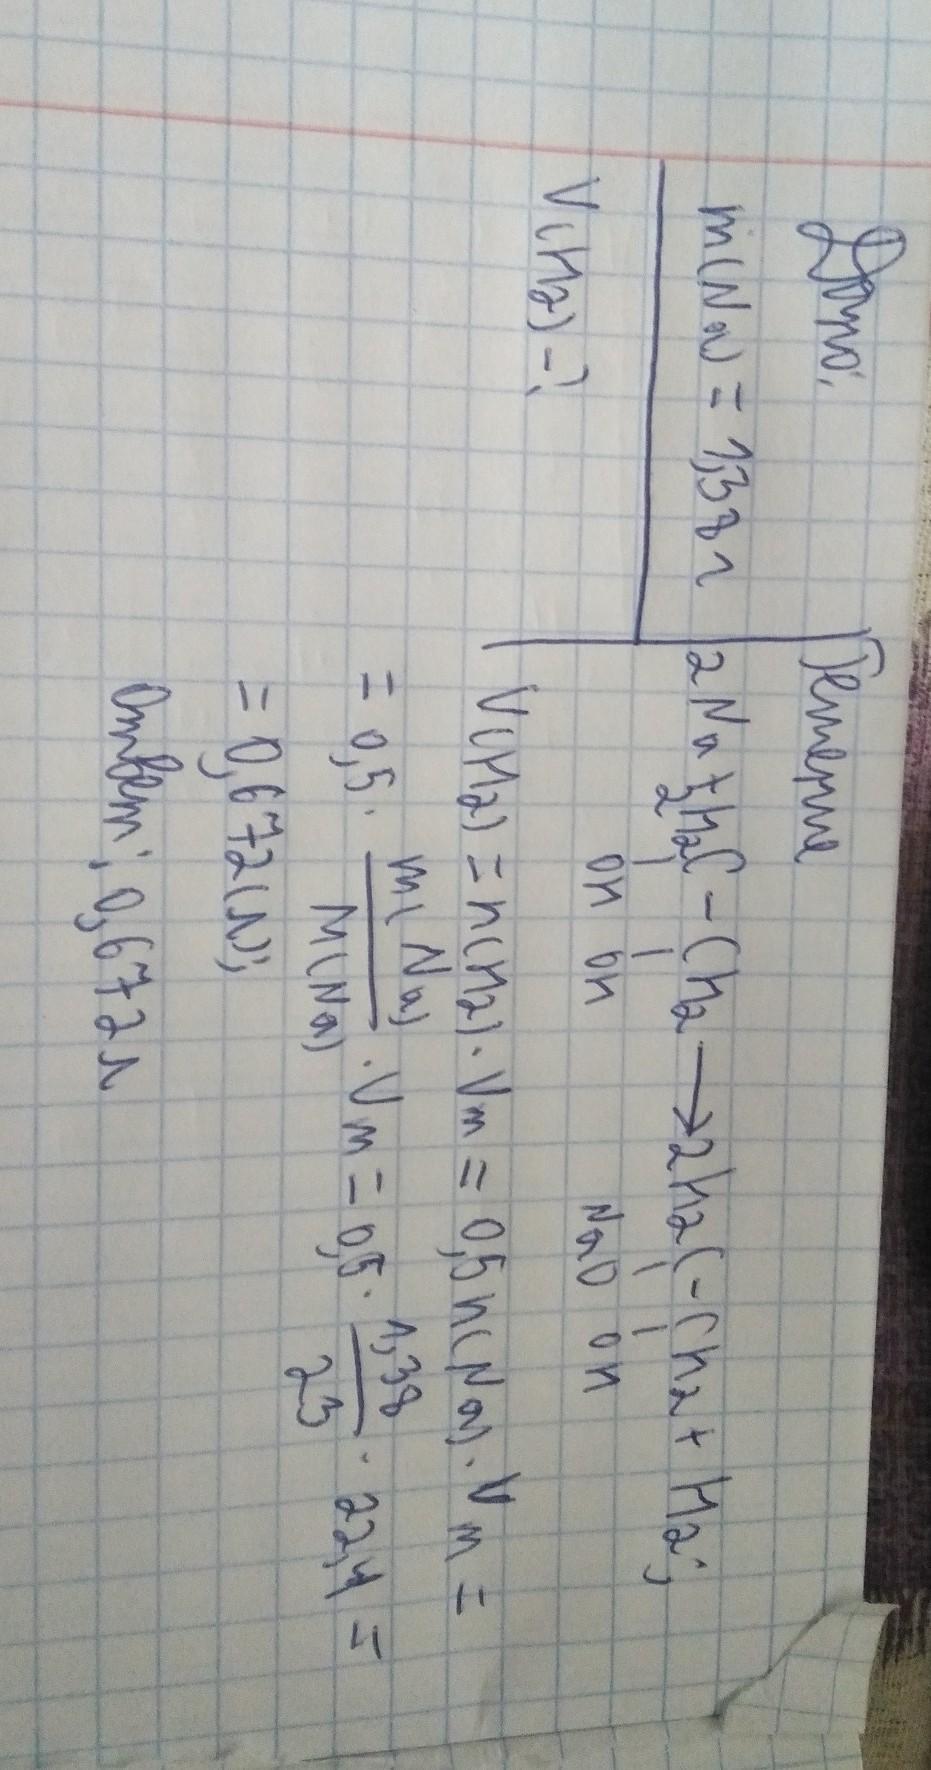 Дано:
m(Na) = 1,38 г
V(H2) - ?
Решение
2Na + 2H2C - CH2 → 2H2C - CH2 + H2;
OH OH NaO OH
V(H2) = n(H2) · Vm = 0,5n(Na) · Vm =
= 0,5 · m(Na) / M(Na) · Vm = 0,5 · 1,38 / 23 · 22,4 =
= 0,672(л);
Ответ: 0,672 л